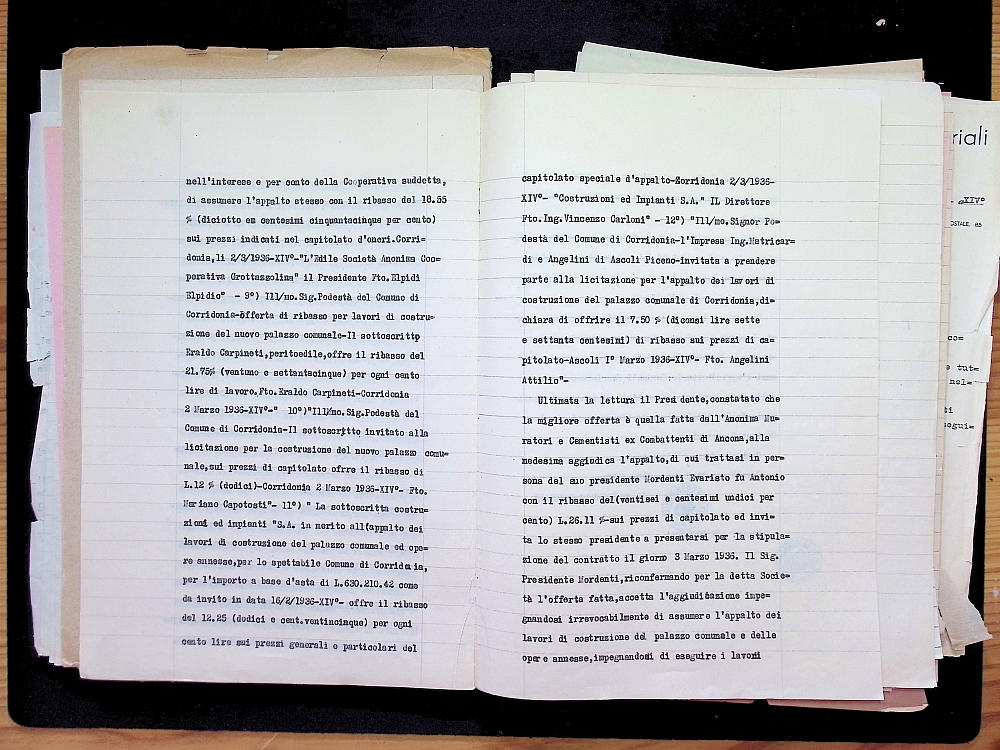 nell'interesse e per conto della Cooperativa suddetta,
di assumere l'appalto stesso con il ribasso del 18.55
% (diciotto en centesimi cinquantacinque per cento)
sui prezzi indicati nel capitolato d'oneri.Corri=
donia,li 2/3/1936-XIV°-"L'Edile Società Anonima Coo=
porativa Grottazzolina" il Presidente Fto.Elpidi
Elpidio" - 9°) Ill/mo.Sig.Podestà del Comune di
Corridonia-offerta di ribasso per lavori di costru=
zione del nuovo palazzo comunale-Il sottoscritto
Eraldo Carpineti,peritoedile,offre il ribasso del
21.75% (ventuno e settantacinque) per ogni cento
lire di lavoro.Fto.Eraldo Carpineti-Corridonia
2 Marzo 1936-XIV°-" 10°)"Ill/mo.Sig.Podestà del
Comune di Corridonia-Il sottoscritto invitato alla
licitazione per la costruzione del nuovo palazzo comu=
nale,sui prezzi di capitolato ofrre il ribasso di
L.12 % (dodici)-Corridonia 2 Marzo 1936-XIV°- Fto.
Mariano Capotosti"- 11°) " La sottoscritta costru=
zioni ed impianti "S.A. in merito all(appalto dei
lavori di costruzione del palazzo comunale ed ope=
re annesse,per lo spettabile Comune di Corridonia,
per l'importo a base d'asta di L.630.210.42 come
da invito in data 16/2/1936-XIV°- offre il ribasso
del 12.25 (dodici e cent.ventincinque) per ogni
cento lire sui prezzi generali e particolari del
capitolato speciale d'appalto-Corridonia 2/3/1936-
XIV°- "Costruzioni ed Impianti S.A." IL Direttore
Fto.Ing.Vincenzo Carloni" - 12°) "Ill/mo.Signor Po=
destà del Comune di Corridonia-l'Impresa Ing.Matricar=
di e Angelini di Ascoli Piceno-invitata a prendere
parte alla licitazione per l'appalto dei lavori di
costruzione del palazzo comunale di Corridonia,di=
chiara di offrire il 7.50 % (diconsi lire sette
e settanta centesimi) di ribasso sui prezzi di ca=
pitolato-Ascoli I° Marzo 1936-XIV°- Fto. Angelini
Attilio"-
Ultimata la lettura il Presi dente,constatato che
la migliore offerta è quella fatta dall'Anonima Mu=
ratori e Cementisti ex Combattenti di Ancona,alla
medesima aggiudica l'appalto,di cui trattasi in per=
sona del suo presidente Mordenti Evaristo fu Antonio
con il ribasso del(ventisei e centesimi undici per
cento) L.26.11 %-sui prezzi di capitolato ed invi=
ta lo stesso presidente a presentarsi per la stipula=
zione del contratto il giorno 3 Marzo 1936. Il Sig.
Presidente Mordenti,riconfermando per la detta Socie=
tà l'offerta fatta,accetta l'aggiudicazione impe=
gnandosi irrevocabilmente di assumere l'appalto dei
lavori di costruzione del palazzo comunale e delle
opere annesse,impegnandosi di eseguire i lavori
riali
XIV°
OSTALE, 85
co=
e tut=
nel=
ti
segui=